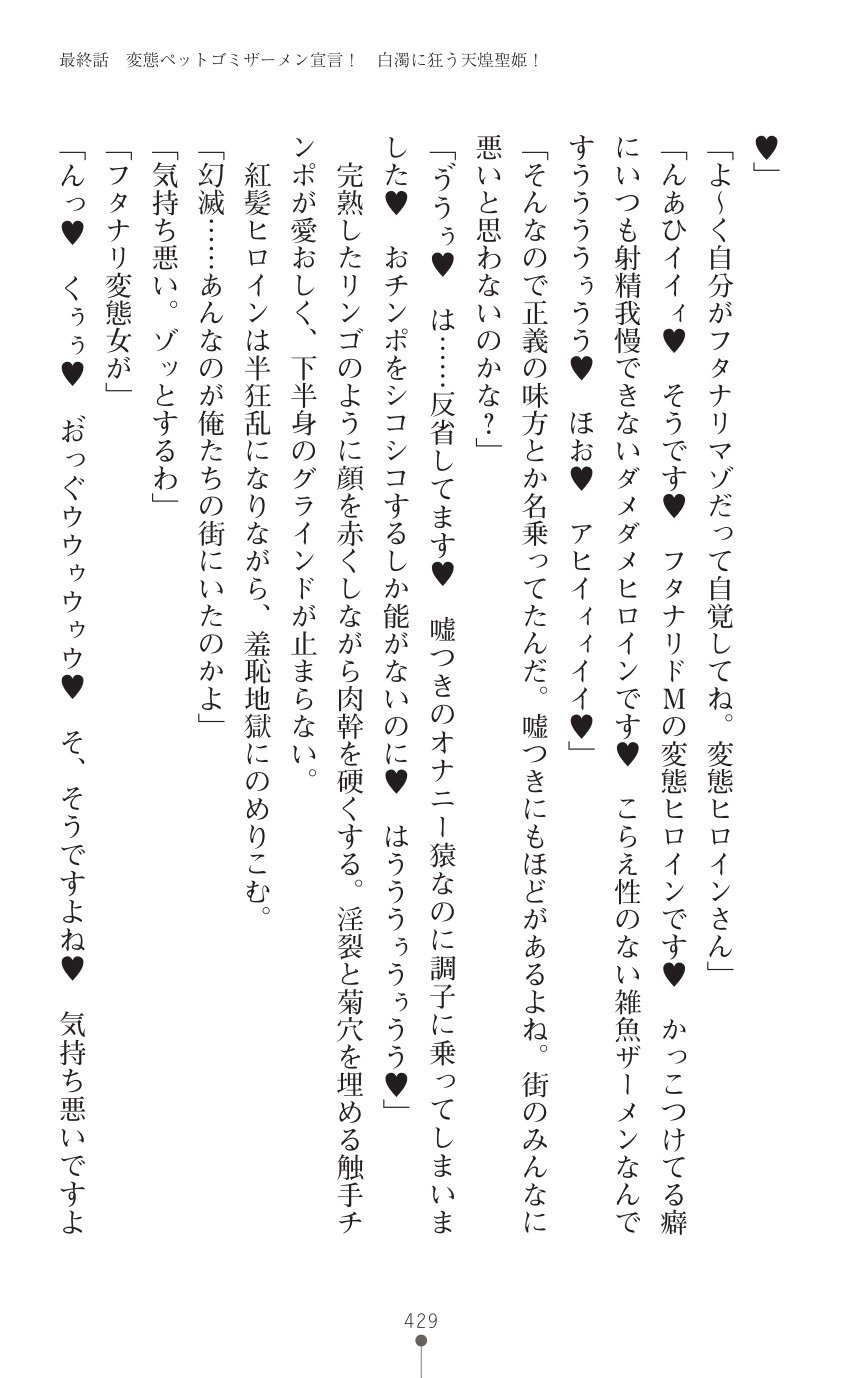 最終話　変態ペットゴミザーメン宣言！　白濁に狂う天煌聖姫！
♥」
「よ～く自分がフタナリマゾだって自覚してね。変態ヒロインさん」
「んぁひイイィ♥　そうです♥　フタナリドＭの変態ヒロインです♥　かっこつけてる癖
にいつも射精我慢できないダメダメヒロインです♥　こらえ性のない雑魚ザーメンなんで
すうううぅうう♥　ほお♥　アヒイィィイイ♥」
「そんなので正義の味方とか名乗ってたんだ。嘘つきにもほどがあるよね。街のみんなに
悪いと思わないのかな？」
「ゔうぅ♥　は……反省してます♥　嘘つきのオナニー猿なのに調子に乗ってしまいま
した♥　おチンポをシコシコするしか能がないのに♥　はううぅうぅうう♥」
　完熟したリンゴのように顔を赤くしながら肉幹を硬くする。淫裂と菊穴を埋める触手チ
ンポが愛おしく、下半身のグラインドが止まらない。
　紅髪ヒロインは半狂乱になりながら、羞恥地獄にのめりこむ。
「幻滅……あんなのが俺たちの街にいたのかよ」
「気持ち悪い。ゾッとするわ」
「フタナリ変態女が」
「んっ♥　くぅぅ♥　お゙っぐウウゥウゥウ♥　そ、そうですよね♥　気持ち悪いですよ
429